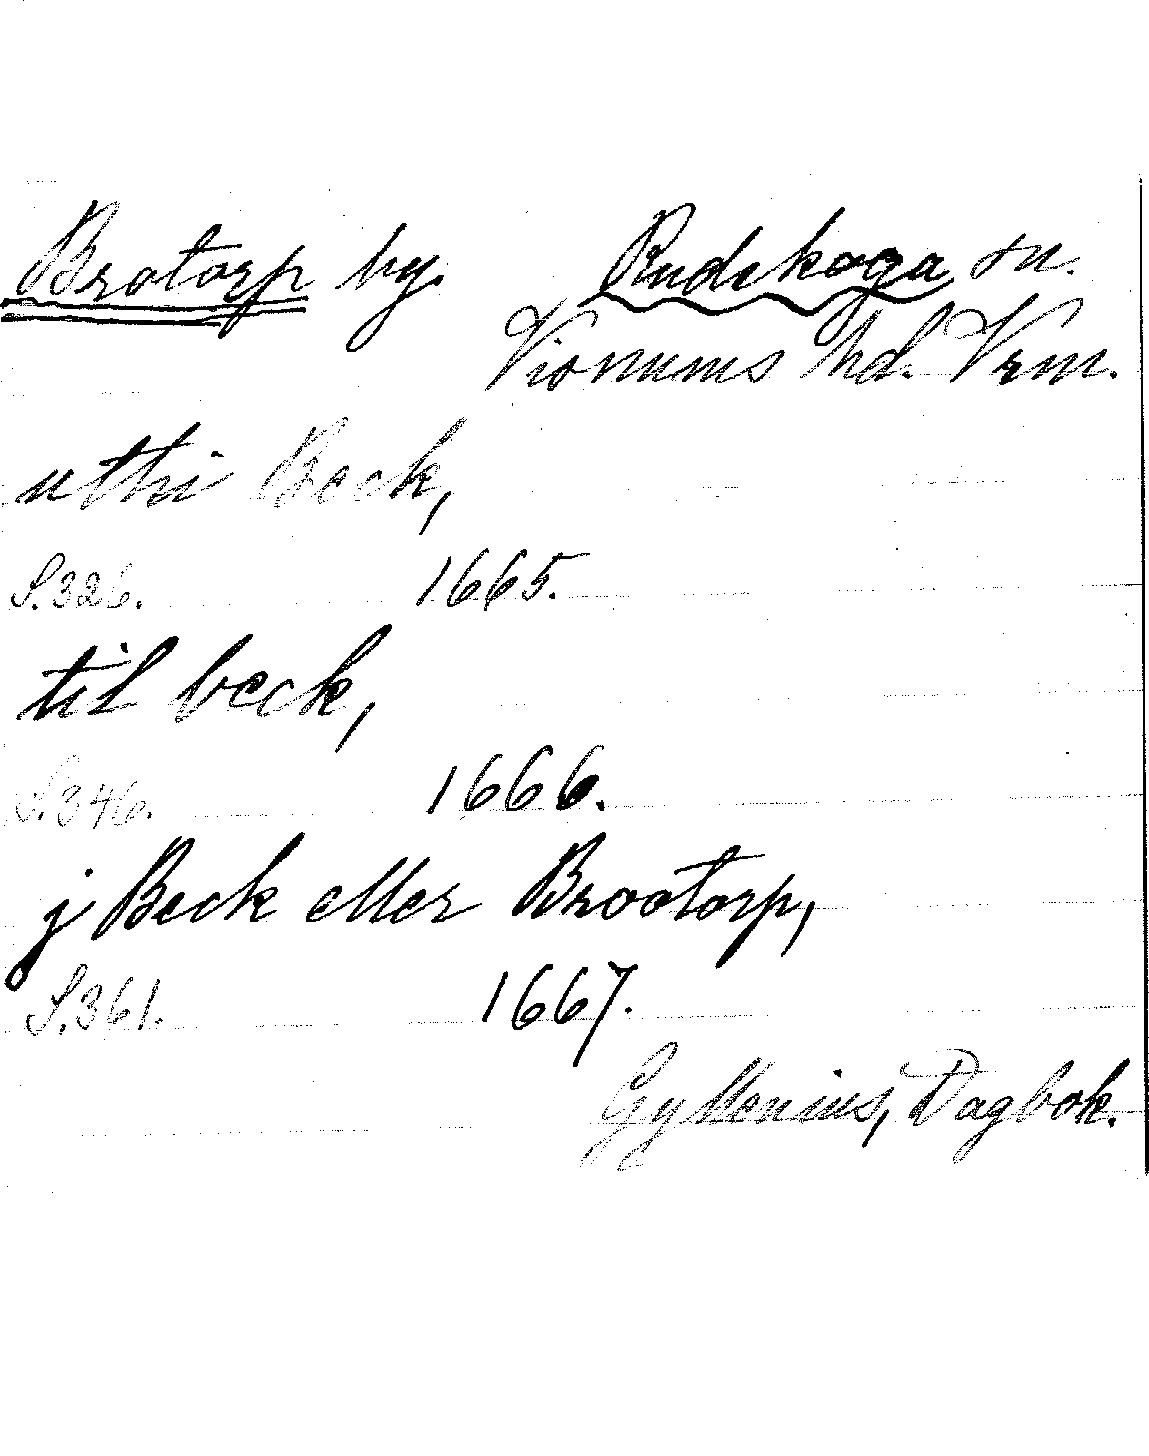 Brotorp by. Rudskoga sn.
Visnums hd. Vrm.
uthi Beck,
S.326. 1665.
til beck,
S.346. 1666.
j Beck eller Brootorp,
S.361. 1667.
Gyllenius, Dagbok.